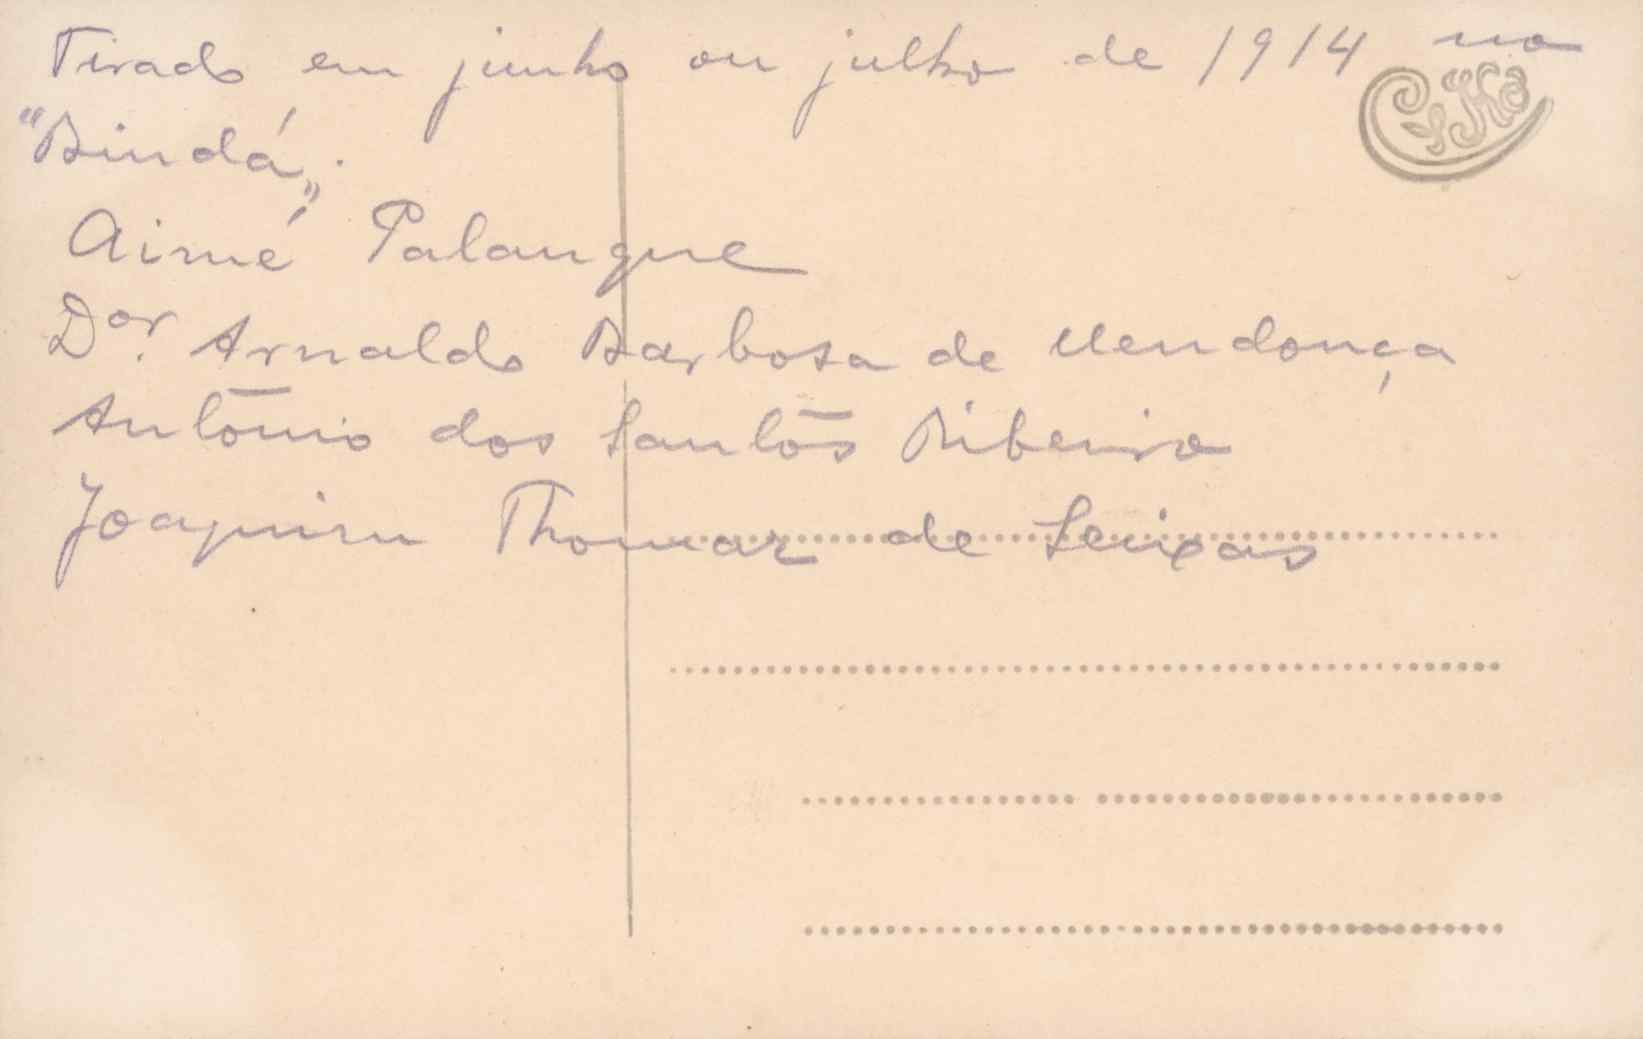 Tirado em junho ou julho de 1914 no
"Bindá".
Aimé Palangue
Dor. Arnaldo Barbosa de Mendonça
António dos Santos Ribeiro
Joaquim Thomaz de Seixas